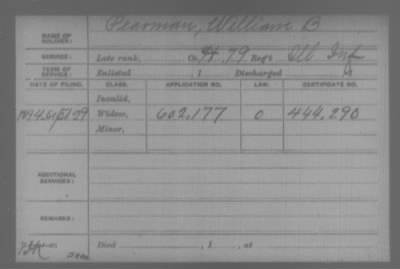 NAME OF SOLDIER: Pearman, William B
SERVICE: Late rank, Co. H. 79 Reg't Ill Inf
TERM OF SERVICE: Enlisted , 1 Discharged , 1
DATE OF FILING. CLASS. APPLICATION NO. LAW. CERTIFICATE NO.
Invalid,
1894 Sept 29 Widow, 602,177 0 444,290
Minor,
ADDITIONAL SERVICES:
REMARKS:
Died , 1 , at